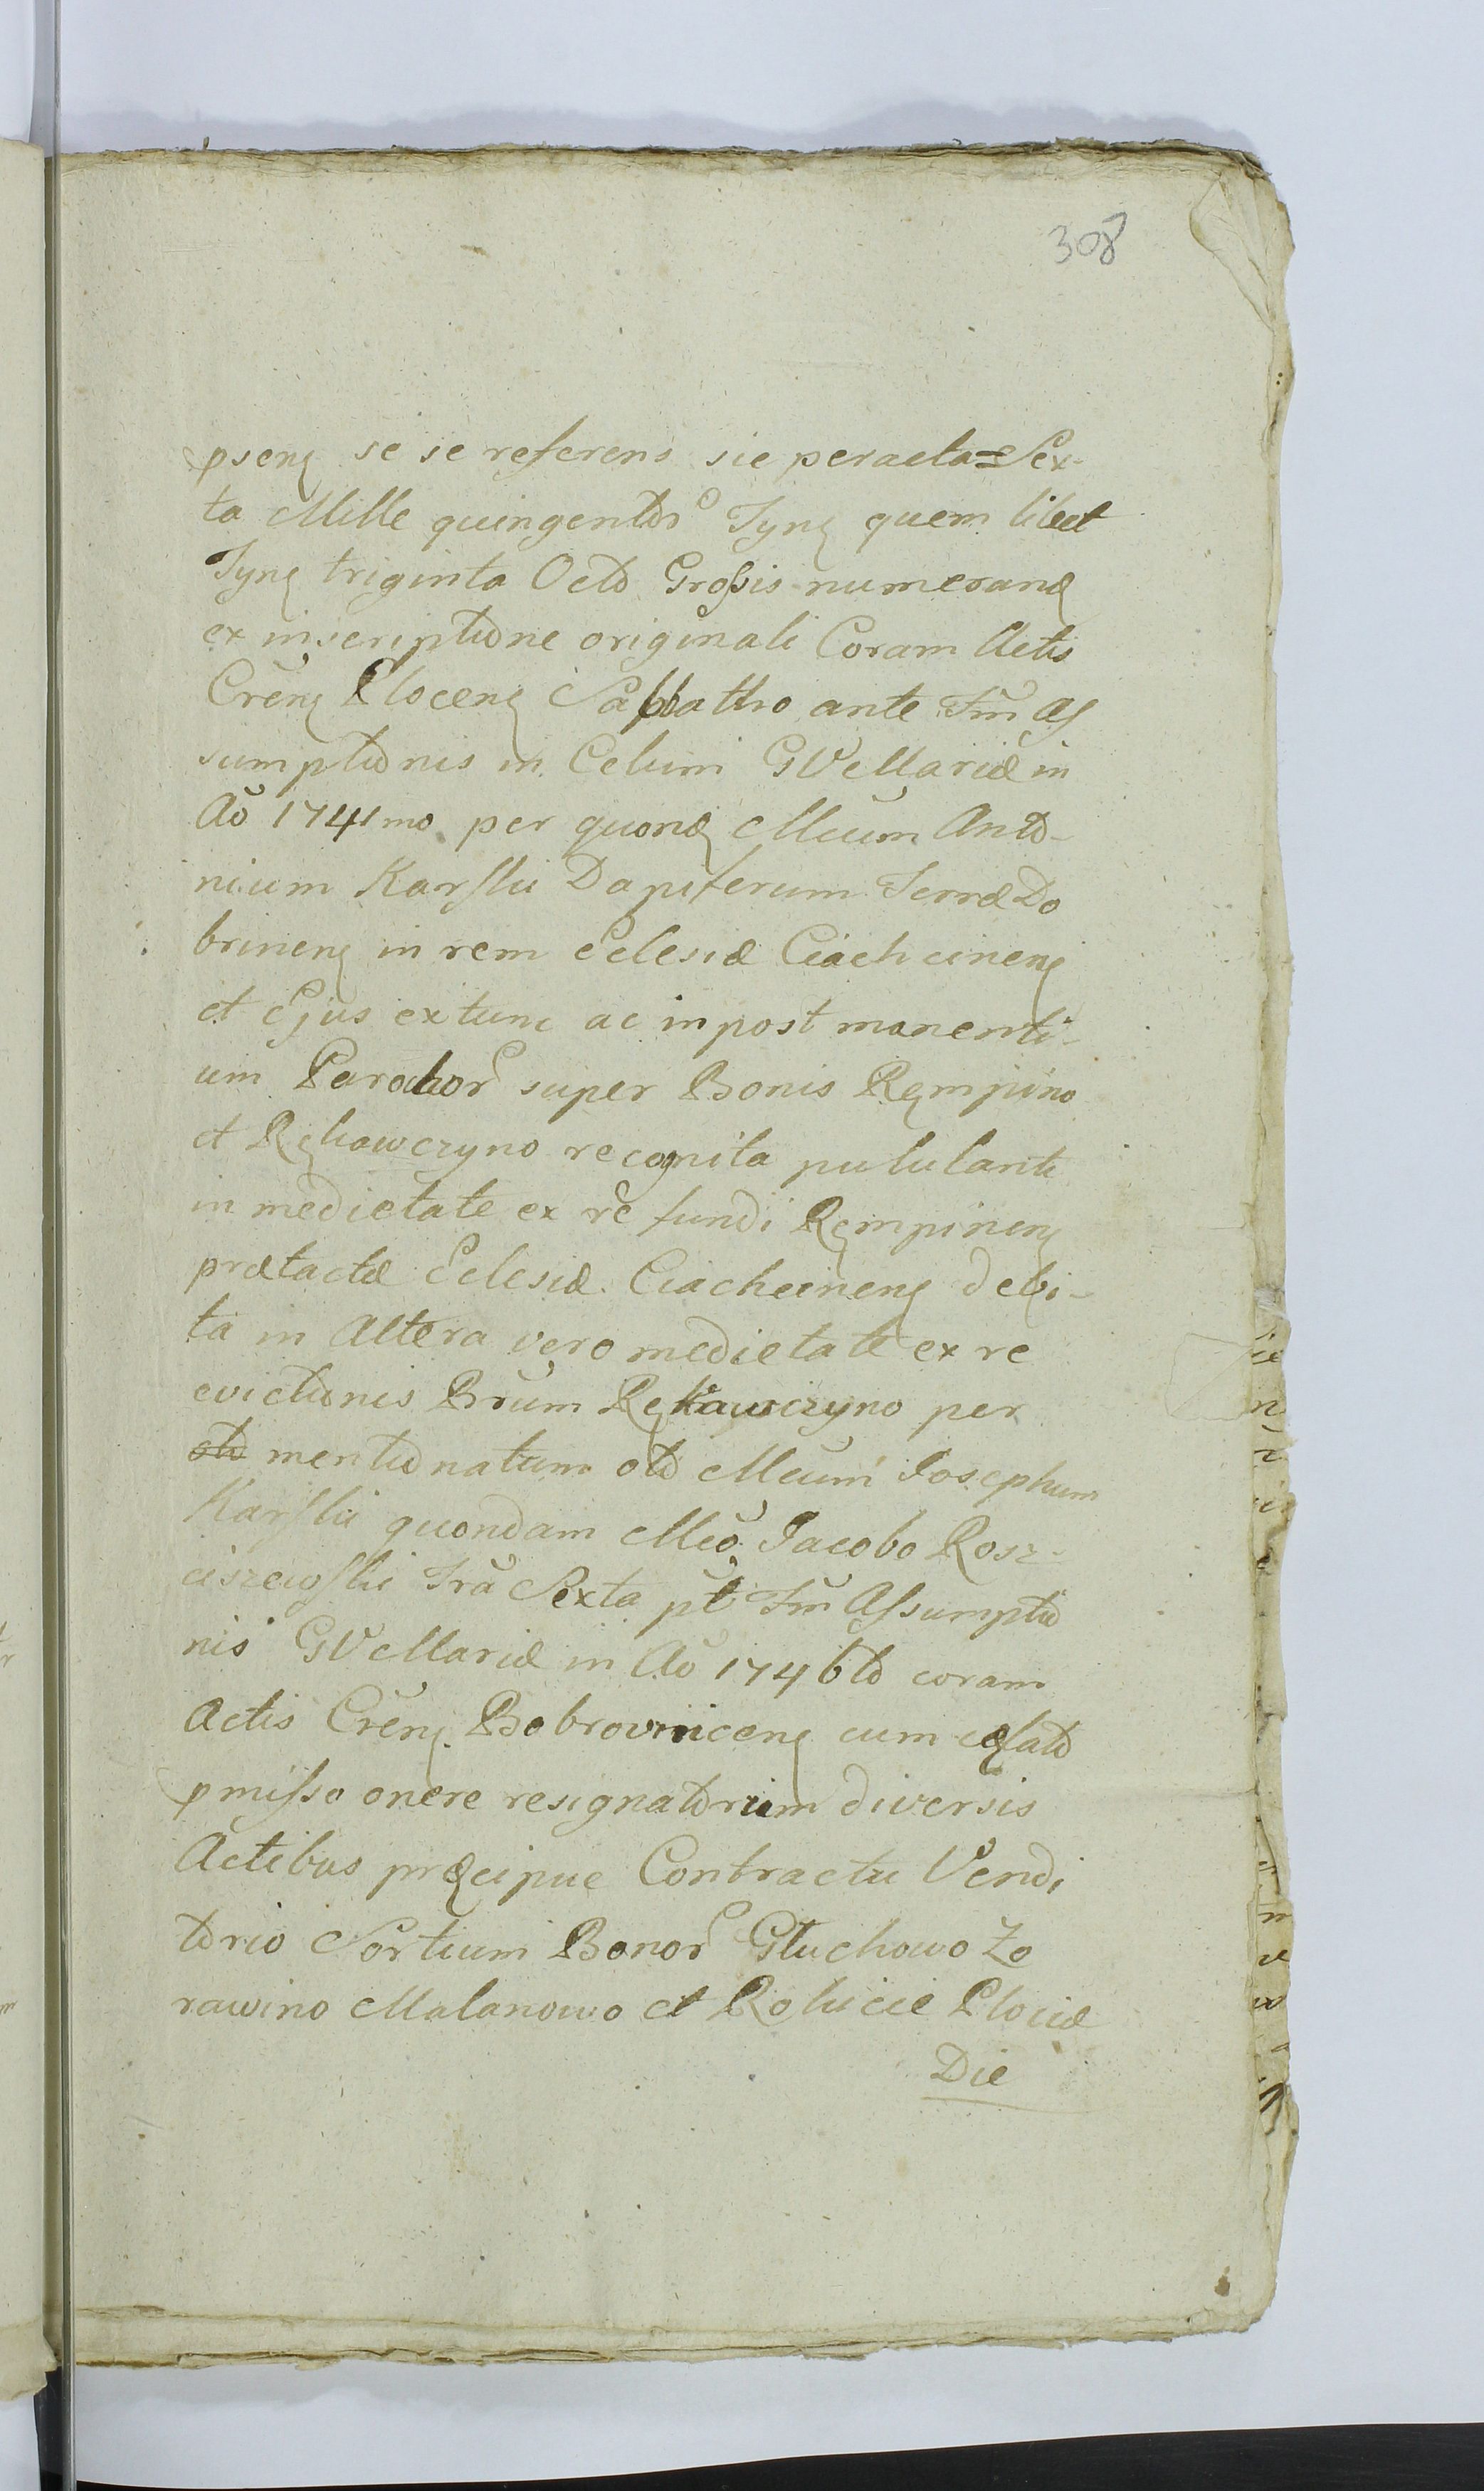 308
pseng se se referens sic peracta = Sex-
ta Mille quingentor Tyng quem libet
Tyng triginta Octo Grossis numerand
ex inscriptione originali Coram Actis
Creng Ploceng Sabbatho ante Fm As
sumptionis in Celum GV Mariæ in
Ao 1741mo per quond Mcum Anto-
nium Karski Dapiferum Terræ Do
brineng in rem Eclesiæ Ciachcineng
et Ejus extunc ac inpost manenti-
um Parochor super Bonis Rempino
et Rękawczyno recognita pululanti
in medietate ex re fundi Rempineng
prætactæ Eclesiæ Ciachcineng debi-
ta in Altera vero medietate ex re
evictionis Brum Rękawczyno per
mentionatum olo Mcum Josephum
Karski quondam Mco Jacobo Rosz-
ciszewski Fra Sexta pt Fm Assumptio
nis GV Mariæ in Ao 1746to coram
Actis Creng Bobrowniceng cum
pmisso onere resignatorum diversis
Actibus præcipue Contractu Vendi
torio Sortium Bonor Głuchowo Zo
rawino Malanowo et Rokicie Plociæ
Die